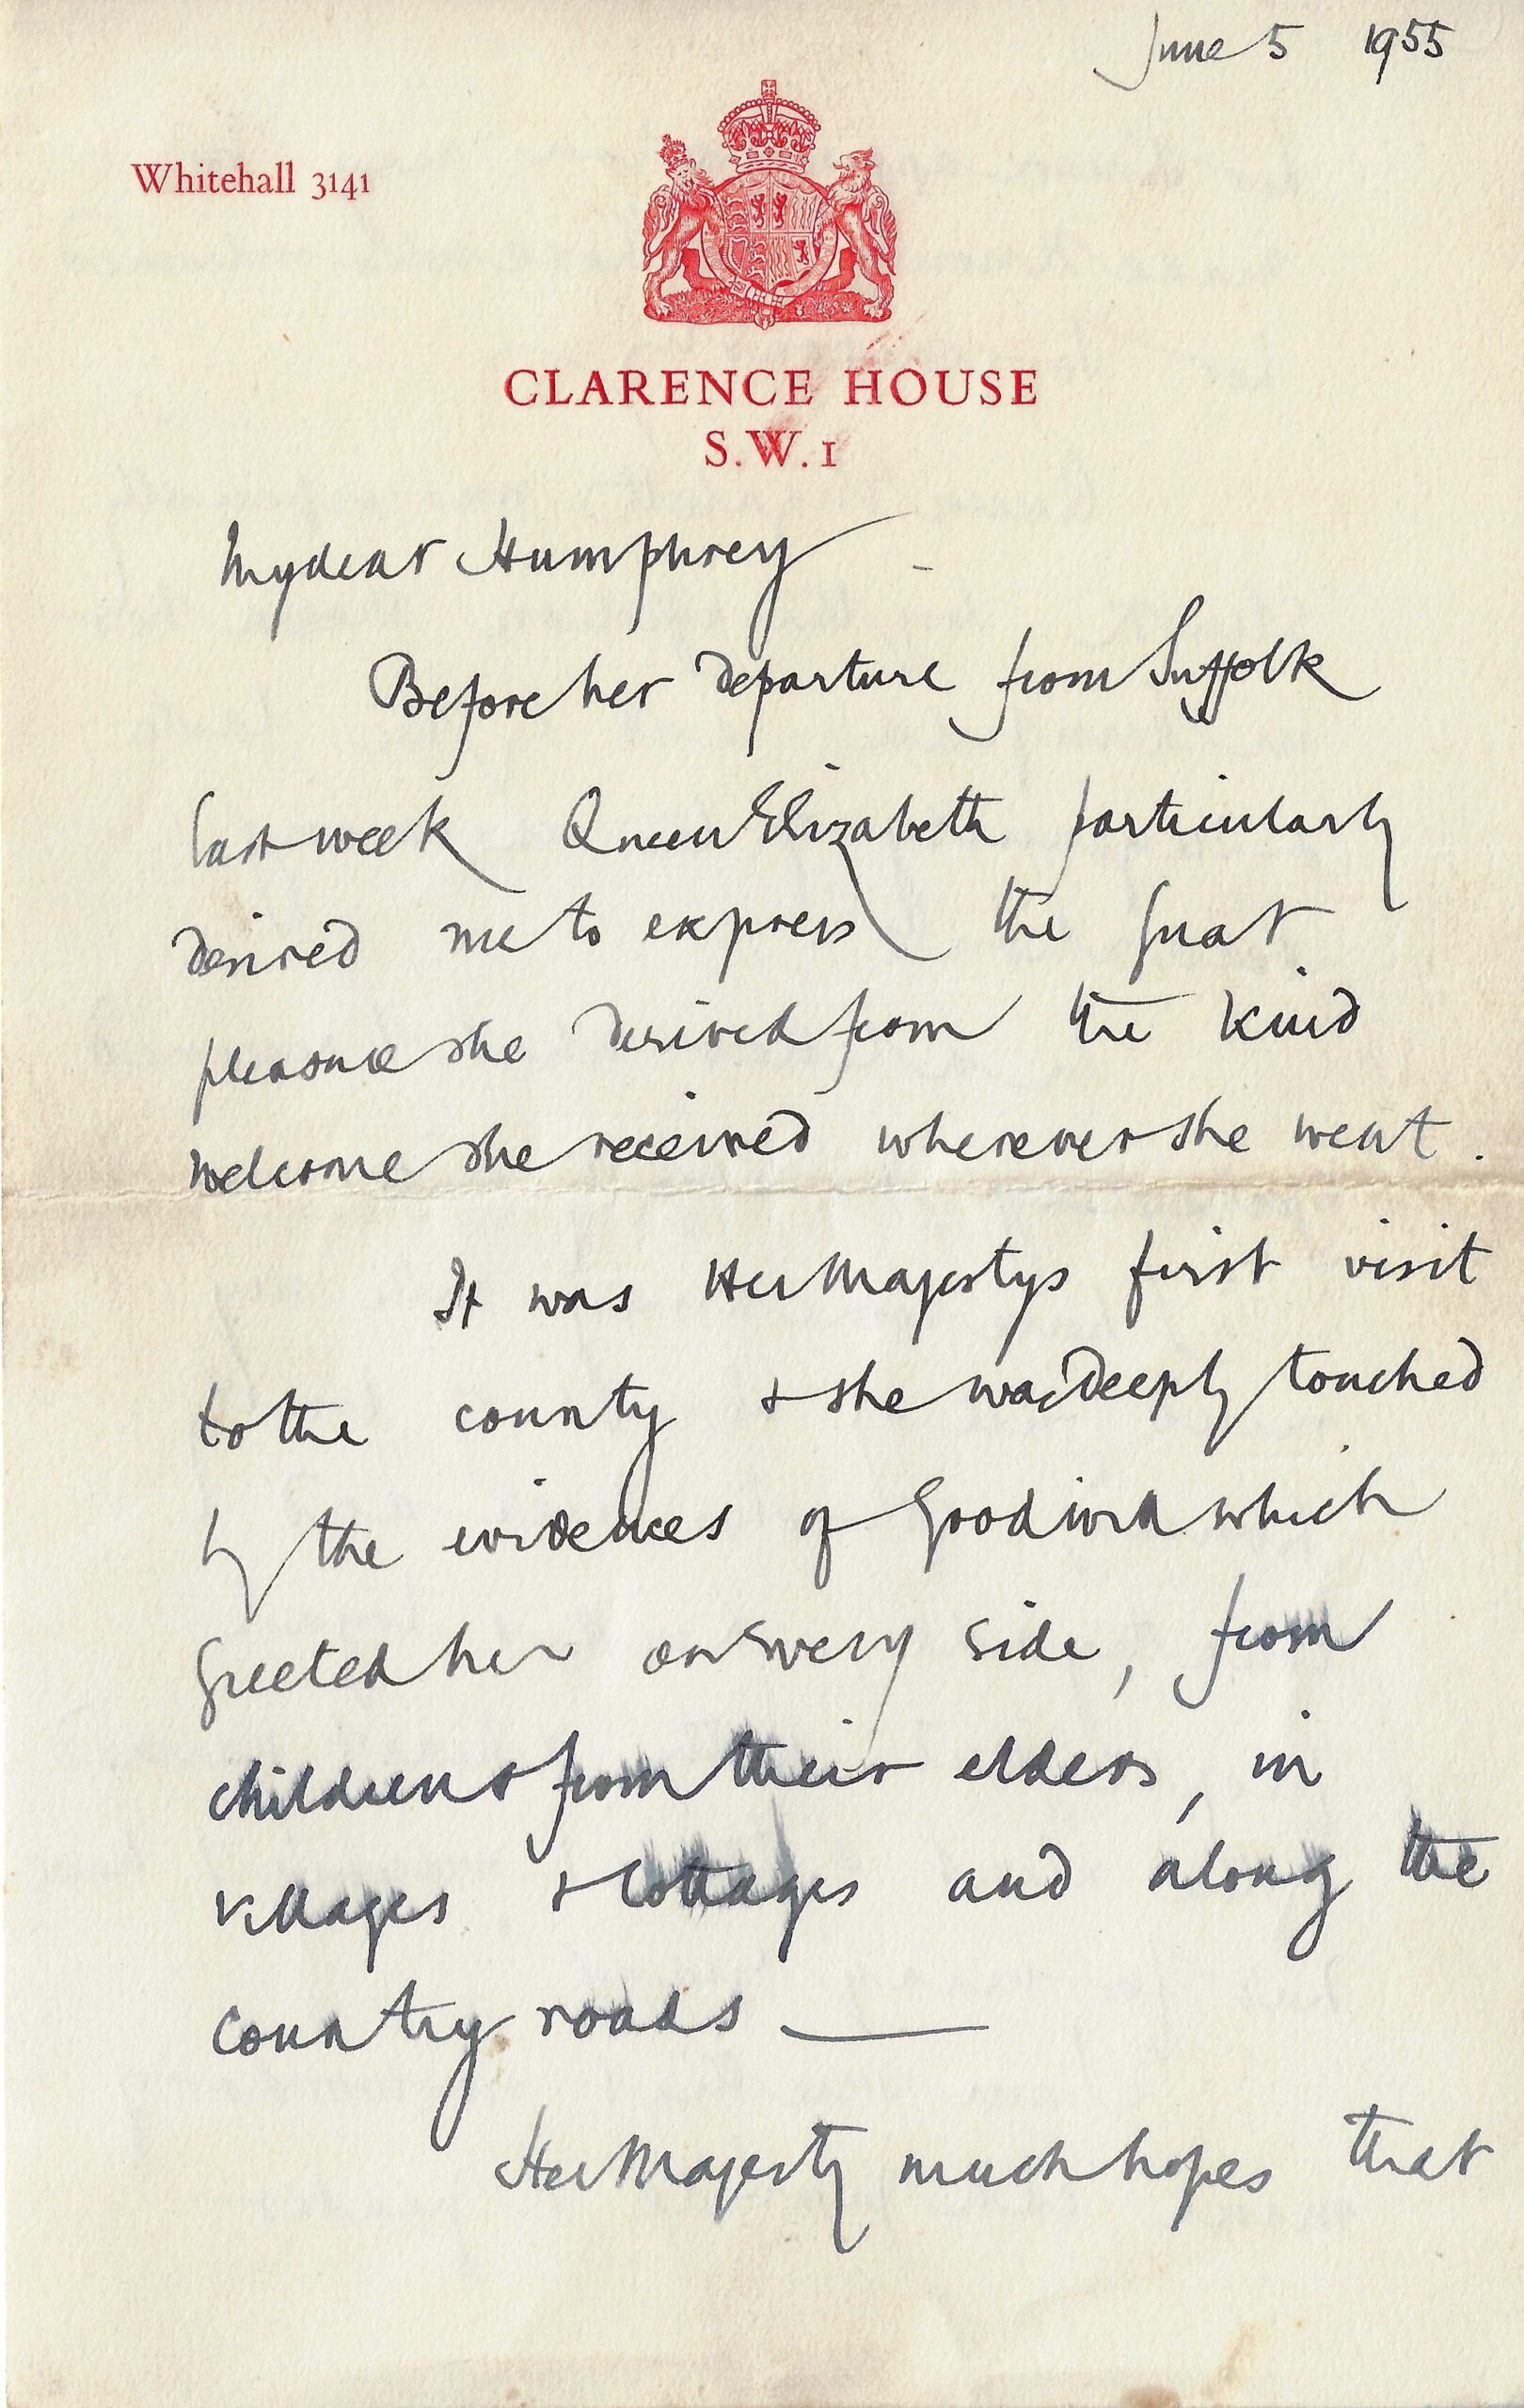 June 5 1955
Whitehall 3141
CLARENCE HOUSE
S.W.1
My dear Humphrey -
Before her departure from Suffolk
last week Queen Elizabeth particularly
desired me to express the great
pleasure she derived from the kind
welcome she received wherever she went.
It was Her Majestys first visit
to the county & she was deeply touched
by the evidences of goodwill which
greeted her on every side, from
children & from their elders, in
villages & cottages and along the
country roads —
Her Majesty much hopes that